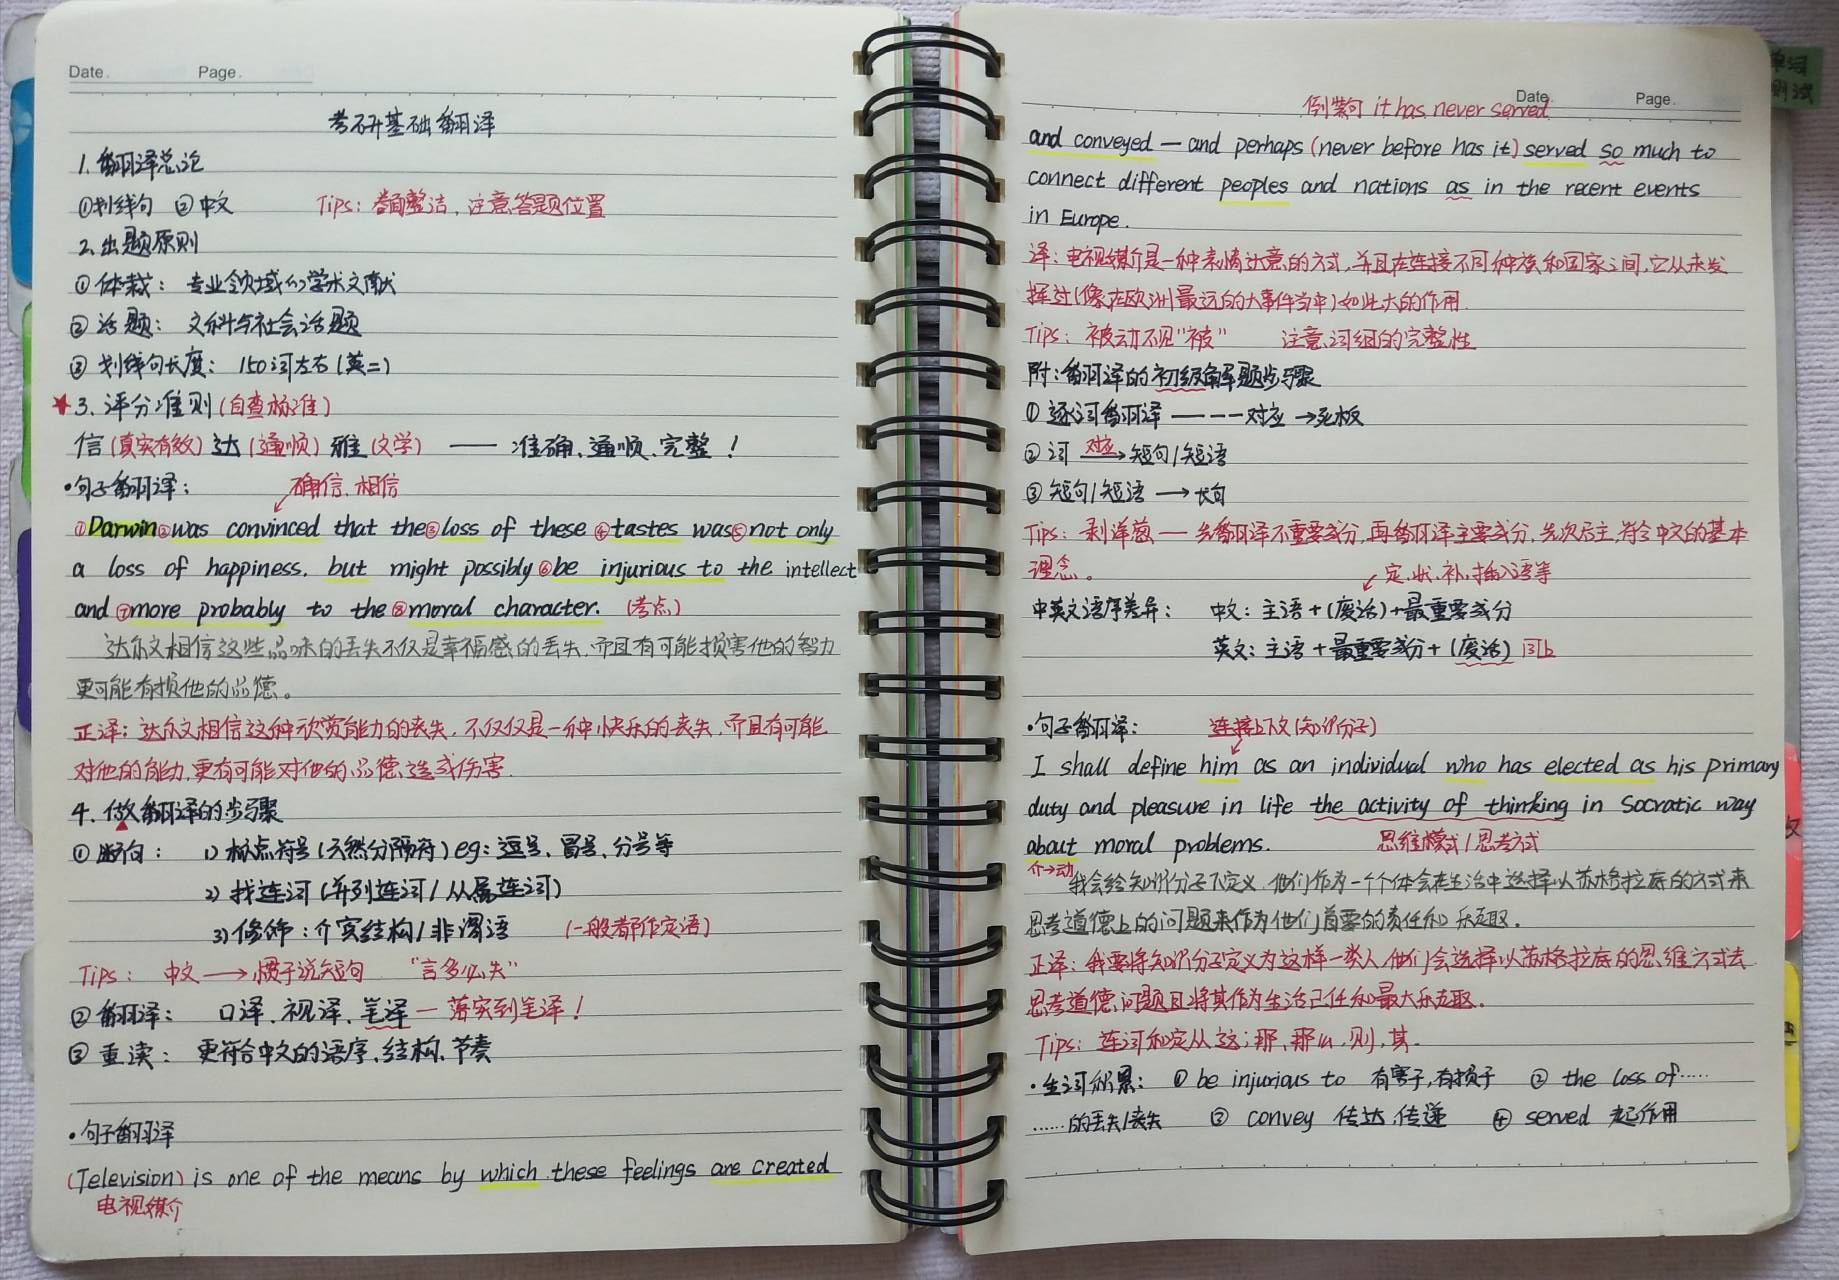 Date. Page.
考研基础翻译
1. 翻译总论
①划线句 ②中文 Tips: 卷面整洁, 注意答题位置
2. 出题原则
① 体裁: 专业领域的学术文献
② 话题: 文科与社会话题
③ 划线句长度: 150词左右(英二)
★3. 评分准则(自查标准)
信(真实有效) 达(通顺) 雅(文学) —— 准确、通顺、完整!
·句子翻译: 确信、相信
①Darwin②was convinced that the③loss of these④tastes was⑤not only
a loss of happiness, but might possibly⑥be injurious to the intellect
and⑦more probably to the⑧moral character. (考点)
达尔文相信这些品味的丢失不仅是幸福感的丢失,而且有可能损害他的智力
更可能有损他的品德。
正译: 达尔文相信这种欣赏能力的丧失, 不仅仅是一种快乐的丧失, 而且有可能
对他的能力,更有可能对他的品德造成伤害.
4. 做翻译的步骤
① 断句: 1) 标点符号(天然分隔符) eg: 逗号、冒号、分号等
2) 找连词(并列连词/从属连词)
3) 修饰: 介宾结构/非谓语 (一般都作定语)
Tips: 中文 → 惯于说短句 "言多必失"
② 翻译: 口译、视译、笔译 — 落实到笔译!
③ 重读: 更符合中文的语序、结构、节奏
·句子翻译
(Television) is one of the means by which these feelings are created
电视媒介
单词
测试
Date. Page.
倒装句 it has never served
and conveyed — and perhaps (never before has it) served so much to
connect different peoples and nations as in the recent events
in Europe.
译: 电视媒介是一种表情达意的方式, 并且在连接不同种族和国家之间, 它从未发
挥过(像在欧洲最近的大事件当中)如此大的作用.
Tips: 被动不见"被" 注意词组的完整性
附: 翻译的初级解题步骤
① 逐词翻译 ---- 对应 → 死板
② 词 对应→ 短句/短语
③ 短句/短语 → 长句
Tips: 剥洋葱 — 先翻译不重要成分, 再翻译主要成分, 先次后主, 符合中文的基本
理念。 定、状、补、插入语等
中英文语序差异: 中文: 主语+(废话)+最重要成分
英文: 主语+最重要成分+(废话) 同上
·句子翻译: 连接上下文(知识分子)
I shall define him as an individual who has elected as his primary
duty and pleasure in life the activity of thinking in Socratic way
about moral problems. 思维模式/思考方式
介→动
我会给知识分子下定义, 他们作为一个个体会在生活中选择以苏格拉底的方式来
思考道德上的问题来作为他们首要的责任和乐趣.
正译: 我要将知识分子定义为这样一类人, 他们会选择以苏格拉底的思维方式去
思考道德问题且将其作为生活己任和最大乐趣.
Tips: 连词和定从 这; 那, 那么, 则, 其.
·生词积累: ① be injurious to 有害于, 有损于 ② the loss of……
……的丢失/丧失 ③ convey 传达、传递 ④ served 起作用